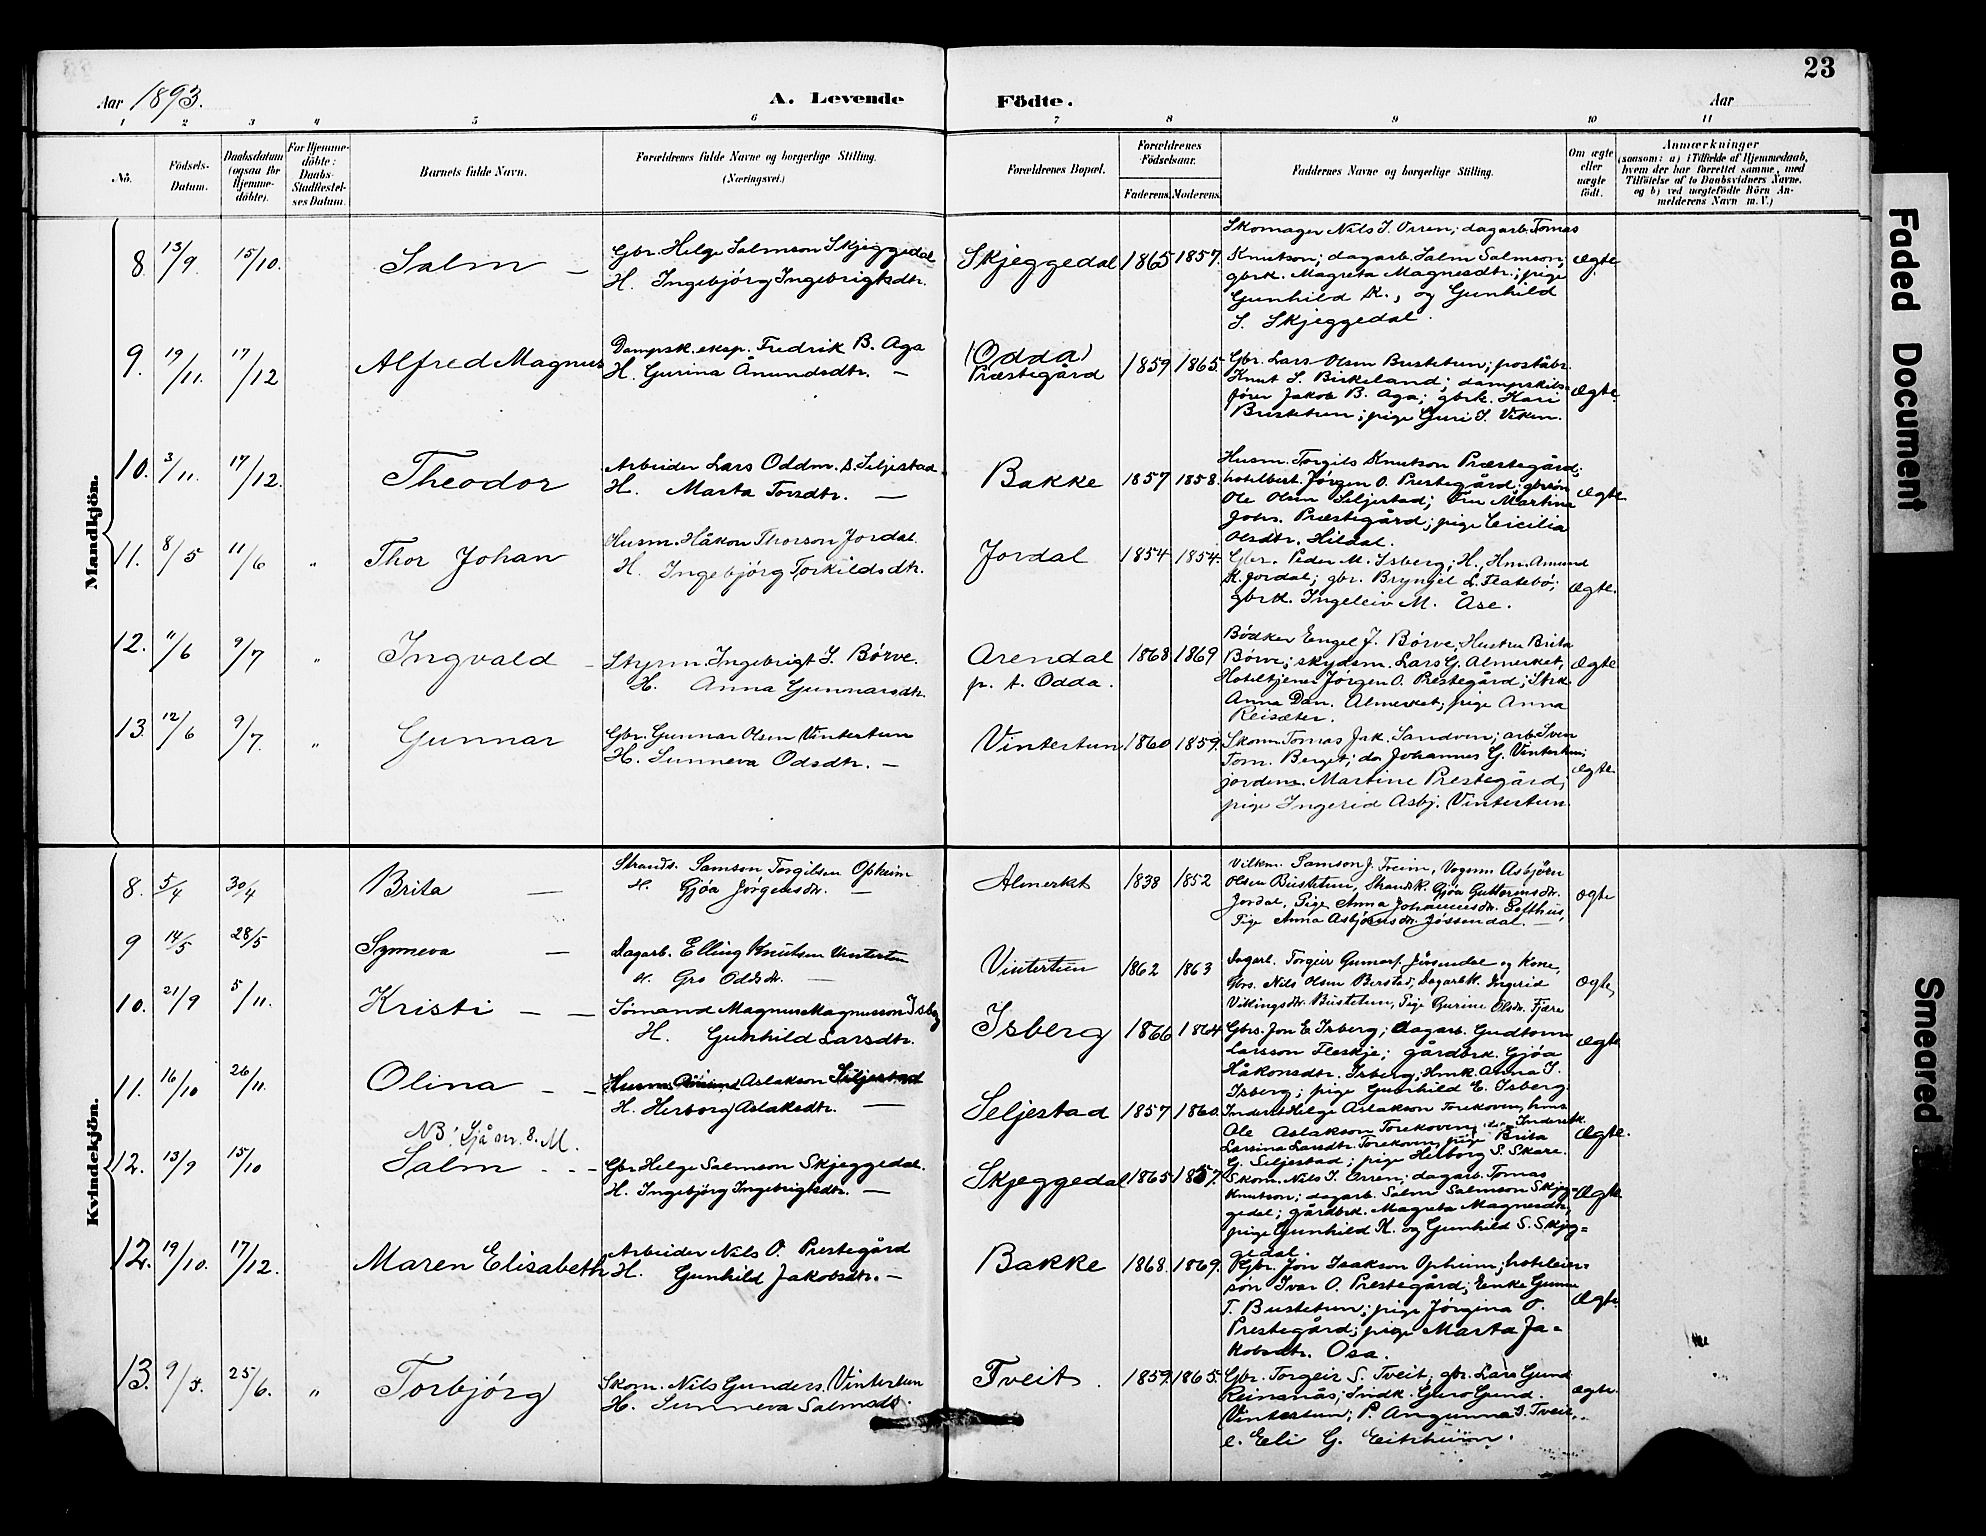 23
Aar 1893.
A. Levende Födte.
Aar
1 2 3 4 5 6 7 8 9 10 11
No.
Födsels-Datum.
Daabsdatum (ogsaa for Hjemme-döbte).
For Hjemme-döbte: Daabs-Stadfæstel-ses Datum.
Barnets fulde Navn.
Forældrenes fulde Navne og borgerlige Stilling. (Næringsvei.)
Forældrenes Bopæl.
Forældrenes Födselsaar.
Faderens. Moderens.
Faddernes Navne og borgerlige Stilling.
Om ægte eller uægte födt.
Anmærkninger
(saasom: a) i Tilfælde af Hjemmedaab,
hvem der har forrettet samme, med
Tilföielse af to Daabsvidners Navne,
og b) ved uægtefödte Börn An-
melderens Navn m. V.)
Mandkjön.
8. 13/9. 15/10. Salm —
Gbr. Helge Salmson Skjeggedal
H. Ingebjörg Ingebrigtsdtr.
Skjeggedal 1865 1857.
Skomager Nils J. Orren; dagarb. Tomas
Knutson; dagarb. Salm Salmson;
gbrk. Magreta Magnesdtr.; pige
Gunhild K., og Gunhild
S. Skjeggedal.
Ægte.
9. 19/11. 17/12 Alfred Magnus
Dampsk. eksp. Fredrik B. Aga
H. Gurina Ånundsdtr. —
(Odda)
Præstegård 1859 1865.
Gbr. Lars Olsen Bustetun; poståbr.
Knut S. Birkeland; dampskibs-
förer Jakob B. Aga; gbrk. Kari
Bustetun; pige Guri J. Viken.
Ægte.
10. 3/11. 17/12. Theodor
Arbeider Lars Oddm. S. Seljestad
H. Marta Torsdtr. —
Bakke 1857 1858.
Husm. Torgils Knutson Præstegård;
hotelbest. Jørgen O. Prestegård; gbrsön
Ole Olsen Seljestad; Fru Martina
Johs. Præstegård; pige Cicilia
Olsdtr. Hildal.
Ægte
11. 8/5 11/6 " Thor Johan
Husm. Håkon Thorson Jordal
H. Ingebjörg Torkildsdtr.
Jordal 1854 1854.
Gbr. Peder M. Isberg; H., Hm. Amund
K. Jordal; gbr. Bryngel L. Flatebö;
gbrk. Ingeleiv M. Åse.
Ægte.
12. 11/6 9/7 " Ingvald —
Styrm. Ingebrigt J. Börve.
H. Anna Gunnarsdtr.
Arendal
p. t. Odda. 1868 1869
Bødker Engel J. Börve, Hustru Brita
Börve; skydsm. Lars G. Almerket,
Hoteltjener Jörgen O. Prestegård; Strk.
Anna Dan. Almerket; pige Anna
Reisæter.
Ægte
13. 12/6 9/7. " Gunnar
Gbr. Gunnar Olsen Vintertun
H. Sunneva Odsdtr. —
Vintertun 1860 1859.
Skom. Tomas Jak. Sandven; arb. Sven
Tom. Berget; do Johannes G. Vintertun;
jordem. Martine Prestegård;
pige Ingerid Asbj. Vintertun.
Ægte.
Kvindekjön.
8. 5/4 30/4 Brita —
Strands. Samson Torgilsen Opheim
H. Gjøa Jørgensdtr. —
Almerket 1838 1852
Samson J. Freim, Vognm. Asbjørn
Olsen Bustetun, Strandk. Gjøa Guttormsdtr.
Jordal, Pige Anna Johannesdtr. Lofthus,
Pige Anna Asbjørnsdtr. Jössendal. —
ægte
9 14/5 28/5 Synneva —
Dagarb. Elling Knutsen Vintertun
H. Gro Oddsdtr. —
Vintertun 1862 1863
Dagarb. Torgeir Gunnars. Jösendal og Kone,
Gbrs. Nils Olsen Berstad, Dagarbk. Ingerid
Vikingsdtr. Bustetun, Pige Gurine Olsdtr. Fjære
ægte,
10. 21/9 5/11. Kristi — —
Sömand Magnus Magnusson Isberg
H. Gunhild Larsdtr.
Isberg 1866 1864
Gbrs. Jon E. Isberg; dagarb. Gudtorm
Larsson Fleskje; gårdbrk. Gjöa
Håkonsdtr. Isberg; Hmk. Anna T.
Isberg; pige Gunhild E. Isberg.
Ægte
11. 16/10 26/11. Olina — —
Husm. Aslakson Seljestad
H. Herborg Aslaksdtr. —
Seljestad 1857 1860.
Inderst Helge Aslakson Torekoven,
Ole Aslakson Torekoven; Inderstk.
Larsina Larsdtr. Torekoven, pige Brita
G. Seljestad; pige Herborg S. Skare.
Ægte.
NB! Sjå nr. 8. M.
12. 13/9 15/10 Salm - - -
Gbr. Helge Salmson Skjeggedal.
H. Ingebjörg Ingebrigtsdtr. —
Skjeggedal 1865 1857.
Skom. Nils J. Orren; dagarb. Tomas
Knutson; dagarb. Salm Salmson Skjeg-
gedal; gårdbrk. Magreta Magnesdtr;
pige Gunhild K. og Gunhild S. Skjeg=
gedal.
Ægte
12. 19/10. 17/12. Maren Elisabeth
Arbeider Nils O. Prestegård
H. Gunhild Jakobsdtr. —
Bakke 1868. 1869.
Gbr. Jon Isakson Opheim; hoteleier-
sön Ivar O. Prestegård; Enke Gunna
T. Bustetun; pige Jörgina O.
Prestegård; pige Marta Ja-
kobsdtr. Osa.
Ægte.
13. 9/5. 25/6. " Torbjörg
Skom. Nils Gunders. Vintertun
H. Sunneva Salmsdtr.
Tveit. 1859 1865.
Gbr. Torgeir S. Tveit; gbr. Lars Gund
Reinsnås; Indk. Guro Gund.
Vintertun; P. Angunna S. Tveit,
e. Eli G. Eitrheim.
Ægte.
Faded Document
Smeared